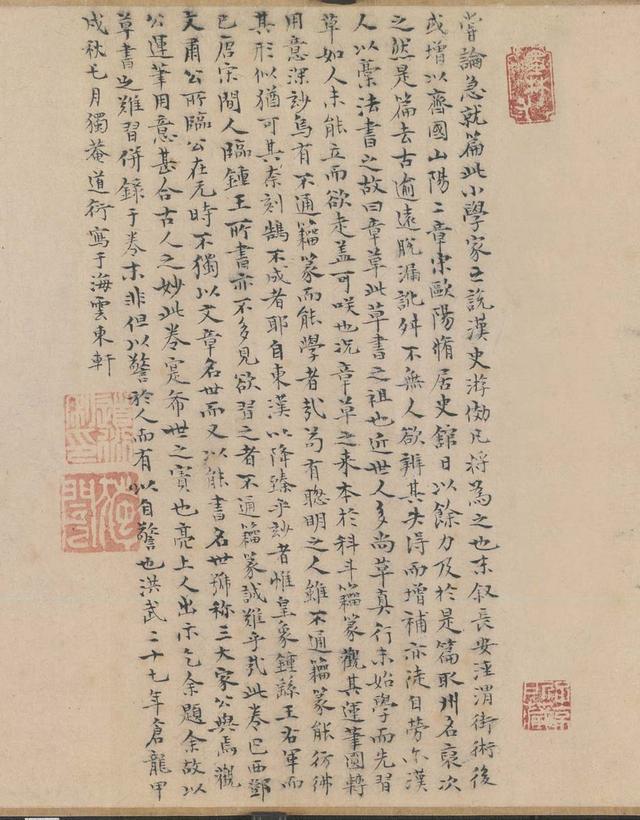 嘗論急就篇此小學家之說漢史游倣凡將為之也末叙長安涇渭街術後
或增以齊國山陽二章宋歐陽脩居史館日以餘力及於是篇取州名裒次
之然是篇去古逾遠脫漏訛舛不無人欲辨其失得而增補亦徒自勞尔漢
人以藁法書之故曰章草此草書之祖也近世人多尚草真行未始學而先習
草如人未能立而欲走盖可咲也况章草之来本於科斗籀篆觀其運筆圓轉
用意深妙烏有不通籀篆而能學者哉苟有聰明之人雖不通籀篆能彷彿
其形似猶可其奈刻鵠不成者耶自東漢以降臻乎妙者惟皇象鍾繇王右軍而
已唐宋間人臨鍾王所書亦不多見欲習之者不通籀篆誠難乎哉此卷巴西鄧
文肅公所臨公在元時不獨以文章名世而又以能書名世號称三大家公與焉觀
公運筆用意甚合古人之妙此卷寔希世之寶也亮上人出示乞余題余故以
草書之難習併錄于卷末非但以警於人而有以自警也洪武二十七年倉龍甲
戌秋七月獨菴道衍寫于海雲東軒